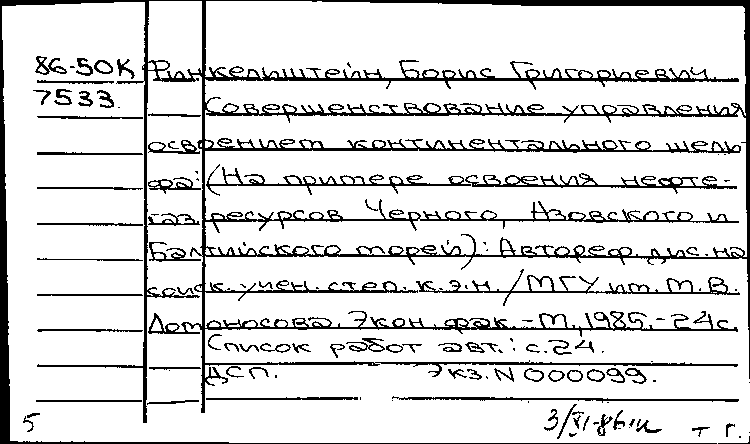 86-50К Финкельштейн, Борис Григорьевич.
7533. Совершенствование управления
освоением континентального шель-
фа: (На примере освоения нефте-
газ. ресурсов Черного, Азовского и
Балтийского морей): Автореф. дис. на
соиск. учен. степ. к.э.н. / МГУ им. М.В.
Ломоносова. Экон. фак. - М., 1985. - 24с.
Список работ авт.: с.24.
ДСП. Экз. N 000099.
5 3/XI-86